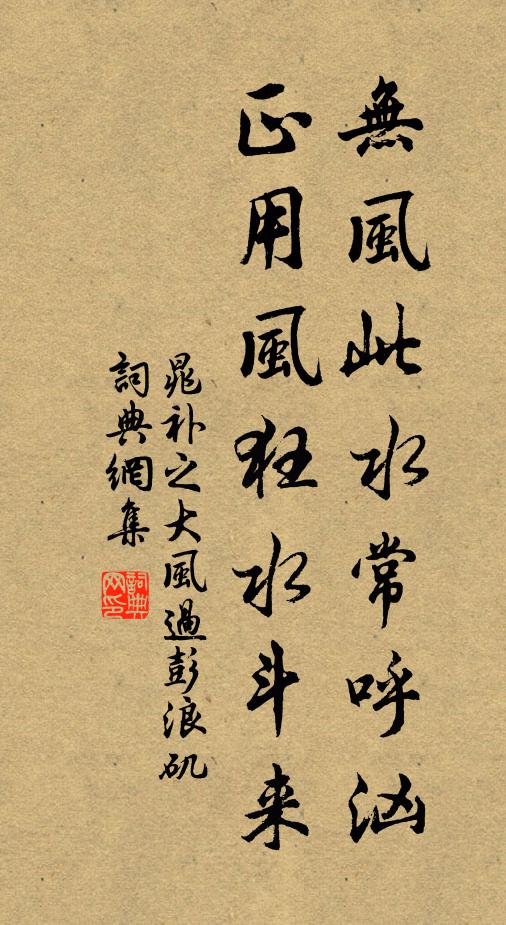 無風此水常呼汹
正用風狂水斗来
晁补之大風過彭浪矶
詞典網集
詞典網印